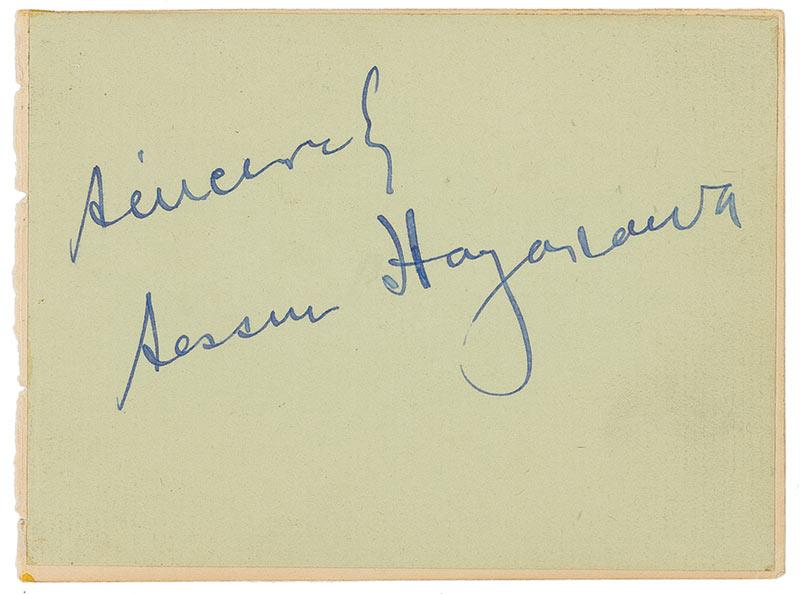 Sincerely
Sessue Hayakawa